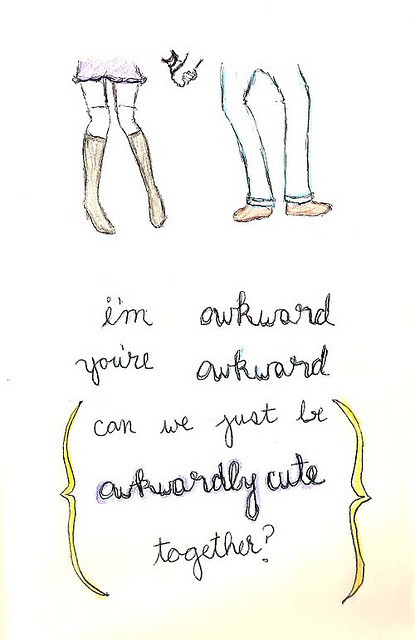 i'm awkward
you're awkward
can we just be
awkwardly cute
together?